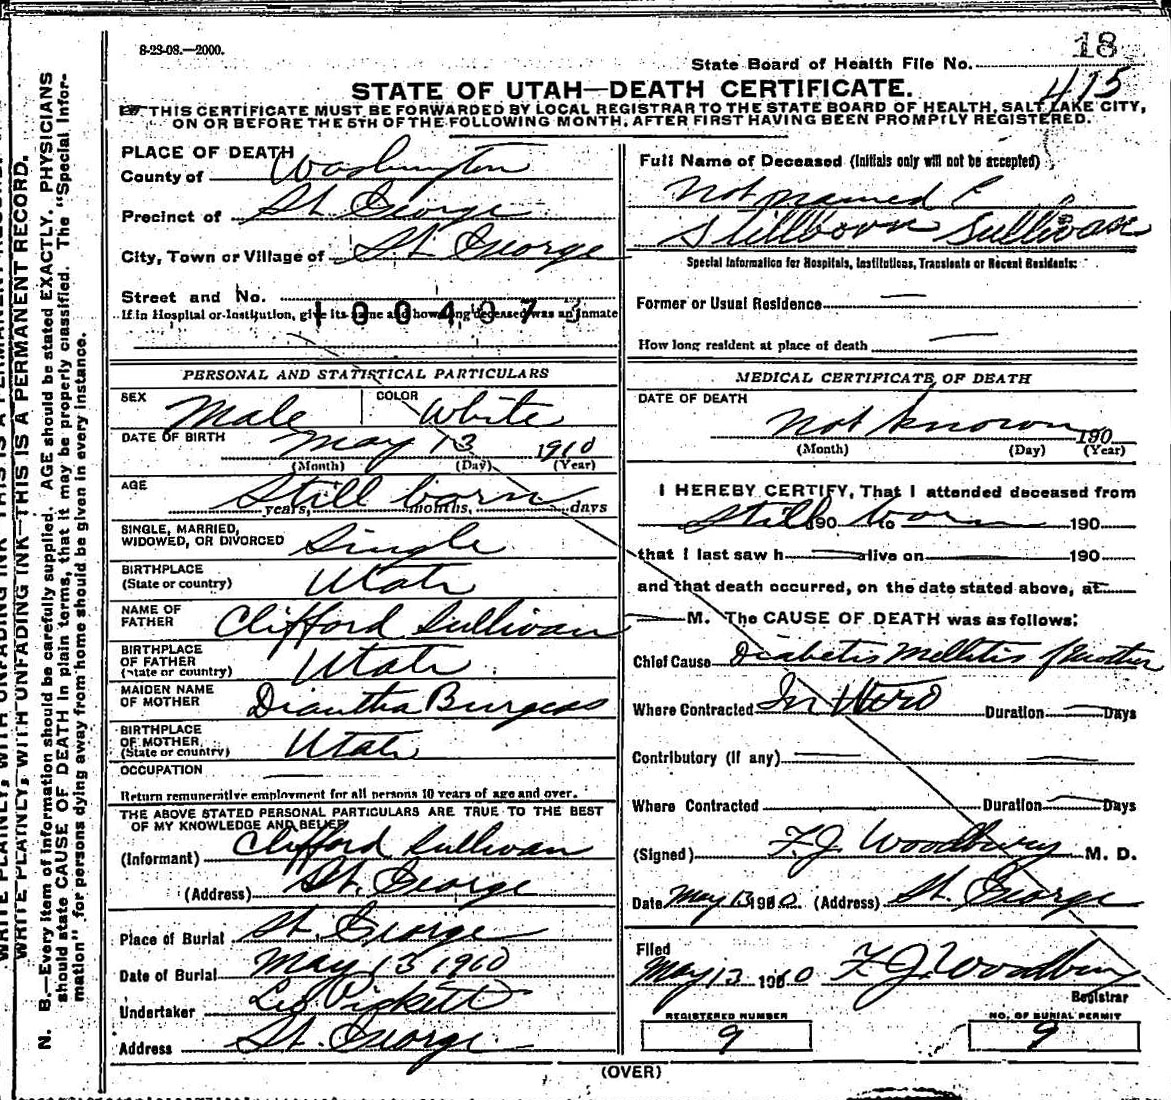 8-23-08.—2000.
18
State Board of Health File No.
415
STATE OF UTAH—DEATH CERTIFICATE.
THIS CERTIFICATE MUST BE FORWARDED BY LOCAL REGISTRAR TO THE STATE BOARD OF HEALTH, SALT LAKE CITY,
ON OR BEFORE THE 5TH OF THE FOLLOWING MONTH, AFTER FIRST HAVING BEEN PROMPTLY REGISTERED.
PLACE OF DEATH
County of Washington
Precinct of St. George
City, Town or Village of St. George
Street and No.
If in Hospital or Institution, give its name and how long deceased was an inmate
PERSONAL AND STATISTICAL PARTICULARS
SEX Male COLOR White
DATE OF BIRTH May 13 1910
(Month) (Day) (Year)
AGE Still born
years, months, days
SINGLE, MARRIED,
WIDOWED, OR DIVORCED Single
BIRTHPLACE
(State or country) Utah
NAME OF
FATHER Clifford Sullivan
BIRTHPLACE
OF FATHER
(State or country) Utah
MAIDEN NAME
OF MOTHER Diantha Burgess
BIRTHPLACE
OF MOTHER
(State or country) Utah
OCCUPATION
Return remunerative employment for all persons 10 years of age and over.
THE ABOVE STATED PERSONAL PARTICULARS ARE TRUE TO THE BEST
OF MY KNOWLEDGE AND BELIEF
(Informant) Clifford Sullivan
(Address) St. George
Place of Burial St. George
Date of Burial May 13 1910
Undertaker Leo Pickett
Address St. George
Full Name of Deceased (Initials only will not be accepted)
Not named
Stillborn Sullivan
Special Information for Hospitals, Institutions, Transients or Recent Residents:
Former or Usual Residence
How long resident at place of death
MEDICAL CERTIFICATE OF DEATH
DATE OF DEATH
Not known 190
(Month) (Day) (Year)
I HEREBY CERTIFY, That I attended deceased from
Still 190 to born 190
that I last saw h alive on 190
and that death occurred, on the date stated above, at
M. The CAUSE OF DEATH was as follows:
Chief Cause Diabetis Mellitis of Mother
Where Contracted In Utero Duration Days
Contributory (if any)
Where Contracted Duration Days
(Signed) F.J. Woodbury M. D.
Date May 13 1910 (Address) St. George
Filed
May 13 1910 F.J. Woodbury
Registrar
REGISTERED NUMBER
9
NO. OF BURIAL PERMIT
9
(OVER)
WRITE PLAINLY, WITH UNFADING INK—THIS IS A PERMANENT RECORD.
N. B.—Every item of information should be carefully supplied. AGE should be stated EXACTLY. PHYSICIANS
should state CAUSE OF DEATH in plain terms, that it may be properly classified. The "Special Infor-
mation" for persons dying away from home should be given in every instance.